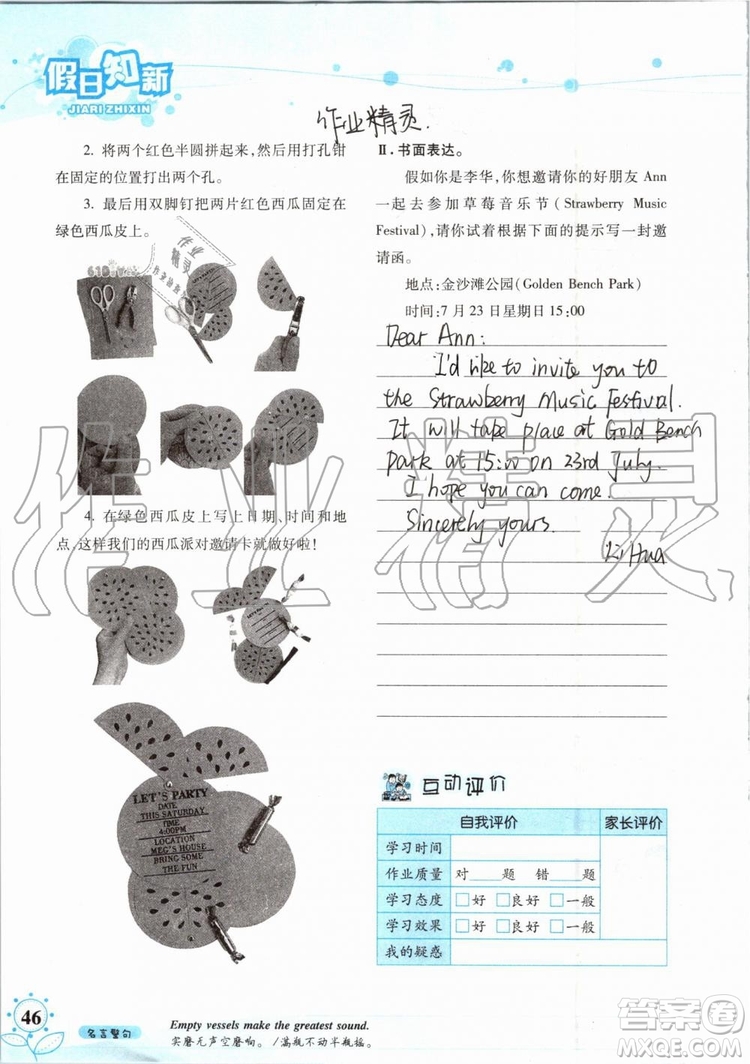 假日知新
JIARI ZHIXIN
作业精灵.
2. 将两个红色半圆拼起来,然后用打孔钳
在固定的位置打出两个孔。
3. 最后用双脚钉把两片红色西瓜固定在
绿色西瓜皮上。
4. 在绿色西瓜皮上写上日期、时间和地
点,这样我们的西瓜派对邀请卡就做好啦!
LET'S PARTY
DATE
THIS SATURDAY
TIME
4:00PM
LOCATION
MEG'S HOUSE
BRING SOME
THE FUN
Ⅱ. 书面表达。
假如你是李华,你想邀请你的好朋友 Ann
一起去参加草莓音乐节(Strawberry Music
Festival),请你试着根据下面的提示写一封邀
请函。
地点:金沙滩公园(Golden Bench Park)
时间:7 月 23 日星期日 15:00
Dear Ann:
I'd like to invite you to
the Strawberry Music Festival.
It will take place at Gold Bench
park at 15:00 on 23rd July.
I hope you can come.
Sincerely yours.
Li Hua
作业精灵
互动评价
自我评价 家长评价
学习时间
作业质量 对 题 错 题
学习态度 □好 □良好 □一般
学习效果 □好 □良好 □一般
我的疑惑
46
名言警句
Empty vessels make the greatest sound.
实磨无声空磨响。/满瓶不动半瓶摇。
答案圈
MXQE.COM